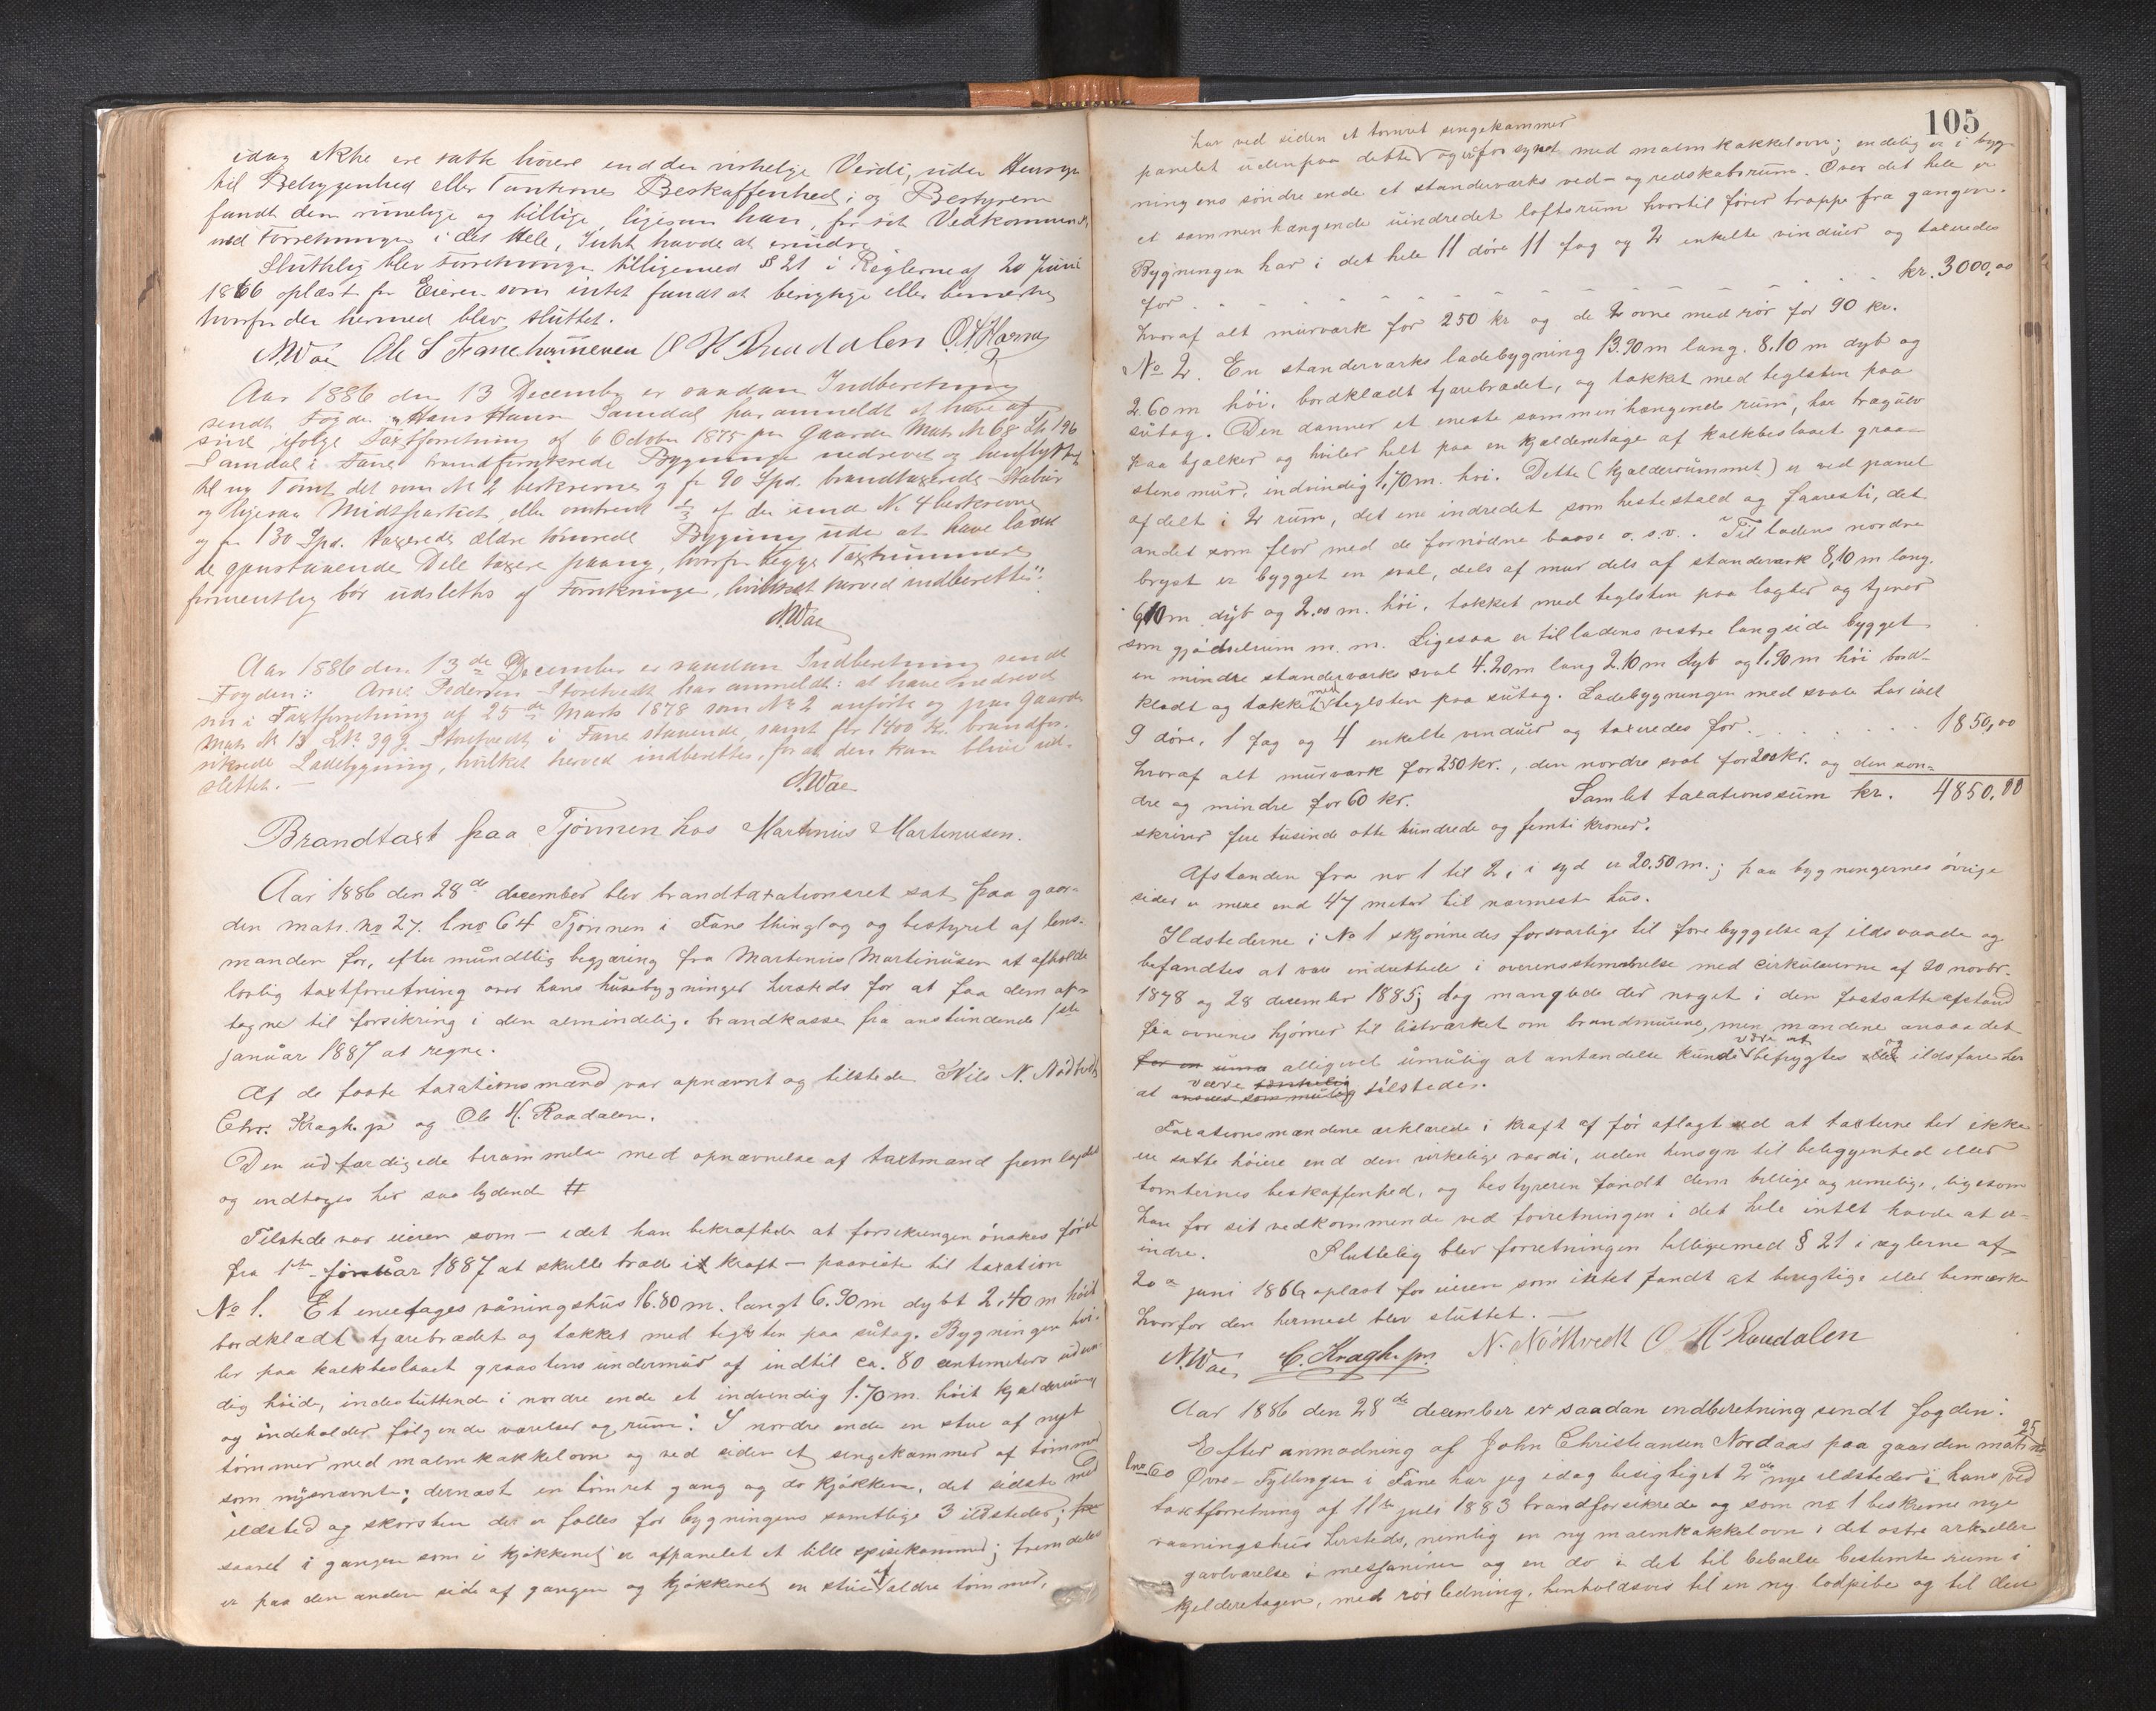 idag ikke ere satte høiere end den virkelige Værdi, uden Hensyn
til Beliggenhed eller Tomternes Beskaffenhed; og Bestyreren
fandt dem rimelige og billige, ligesom han, for sit Vedkommende,
ved Forretningen i det Hele, Intet havde at erindre.
Sluttelig blev Forretningen tilligemed § 21 i Reglerne af 20 Juni
1866 oplæst for Eieren som intet fandt at berigtige eller bemærke
hvorfor den hermed blev sluttet.
N. Wae Ole S Fanehammeren O M Raadalen
Aar 1886 den 13 December er saadan Indberetning
sendt Fogden: "Hans Hansen Samdal har anmeldt at have af
sine ifølge Taxtforretning af 6 October 1875 paa Gaarden Matr. No 68 Lb 196
Samdal i Fane brandforsikrede Bygninger nedrevet og henflyttet
til ny Tomt det som No 2 beskrevne og for 90 Spd. brandtaxerede Stabur
og ligesaa Midtpartiet eller omtrent 1/3 af den under No 4 beskrevne
og for 130 Spd. taxerede ældre tømrede Bygning uden at have ladet
de gjenstaaende Dele taxere paany, hvorfor begge Taxtnummere
formentlig bør udslettes af Forsikringen, hvilket herved indberettes".
N. Wae
Aar 1886 den 13de December er saadan Indberetning sendt
Fogden: Arne Pedersen Storetvedt har anmeldt: at have nedrevet
den i Taxtforretning af 25de Marts 1878 som No 2 anførte og paa Gaarden
Matr. No 13 LNr. 39g. Storetvedt i Fane staaende, samt for 1400 Kr. brandfor-
sikrede Ladebygning, hvilket herved indberettes, for at den kan blive ud-
slettet. —
N. Wae
Brandtaxt paa Tjønnen hos Martinus Martinusen.
Aar 1886 den 28de december blev brandtaxationsret sat paa gaar-
den matr. no 27. lno 64 Tjønnen i Fane thinglag og bestyret af lens-
manden for, efter mundtlig begjæring fra Martinus Martinusen at afholde
lovlig taxtforretning over hans husebygninger hersteds for at faa dem op-
tagne til forsikring i den almindelige brandkasse fra anstundende 1ste
januar 1887 at regne.
Af de faste taxationsmænd var opnævnt og tilstede Nils N. Nødtvedt
Chr. Kragh. jr og Ole M. Raadalen.
Den udfærdigede berammelse med opnævnelse af taxtmænd fremlagdes
og indtages her saa lydende #
Tilstede var eieren som — idet han bekræftede at forsikringen ønskes først
fra 1ste januar 1887 at skulle træde i kraft — paaviste til taxation
No 1. Et enetages vaaningshus 16.80 m. langt 6.90 m dybt 2.40 m høit
bordklædt tjærebrædet og tækket med teglsten paa sutag. Bygningen hvi-
ler paa kalkbeslaaet graastens undermur af indtil ca. 80 centimeters udven-
dig høide, indesluttende i nordre ende et indvendig 1.70 m. høit kjælderrum
og indeholder følgende værelser og rum: I nordre ende en stue af nyt
tømmer med malmkakkelovn og ved siden et sengekammer af tømmer
som nysnævnte; dernæst en tømret gang og do kjøkken, det sidste med
ildsted og skorsten der er fælles for bygningens samtlige 3 ildsteder;
saavel i gangen som i kjøkkenet er afpanelet et lille spisekammer; fremdeles
er paa den anden side af gangen og kjøkkenet en stue af ældre tømmer,
105
har ved siden et tømret sengekammer
panelet udenpaa dette og er forsynet med malmkakkelovn; endelig er i byg-
ningens søndre ende et standerværks ved- og redskabsrum. Over det hele er
et sammenhængende uindredet loftsrum hvortil fører trappe fra gangen.
Bygningen har i det hele 11 døre 11 fag og 2 enkelte vinduer og taxeredes
for . . . . . . . . kr. 3000,00
hvoraf alt murværk for 250 kr og de 2 ovne med rør for 90 kr.
No 2. En standerværks ladebygning 13.90 m lang. 8.10 m dyb og
2.60 m høi, bordklædt tjærebrædet, og tækket med teglsten paa
sutag. Den danner et eneste sammenhængende rum, har trægulv
paa bjælker og hviler helt paa en kjælderetage af kalkbeslaaet graa-
stensmur, indvendig 1.70 m. høi. Dette (kjælderrummet) er ved panel
afdelt i 2 rum, det ene indredet som hestestald og faaresti, det
andet som flor med de fornødne baase o.s.v.. Til ladens nordre
bryst er bygget en sval, dels af mur dels af standerværk 8,10 m lang.
6,10 m dyb og 2.00 m. høi, tækket med teglsten paa lægter og tjener
som gjødselrum m. m. Ligesaa er til ladens vestre langside bygget
en mindre standerværks sval 4.20 m lang 2.10 m dyb og 1.90 m høi bord-
klædt og tækket med teglsten paa sutag. Ladebygningen med svale har ialt
9 døre, 1 fag og 4 enkelte vinduer og taxeredes for . . . . . . 1850,00
hvoraf alt murværk for 250 kr., den nordre sval for 200 kr. og den søn-
dre og mindre for 60 kr. Samlet taxationssum kr. 4850,00
skriver fire tusinde otte hundrede og femti kroner.
Afstanden fra no 1 til 2, i syd er 20.50 m.; paa bygningernes øvrige
sider er mere end 47 meter til nærmeste hus.
Ildstederne i No 1 skjønnedes forsvarlige til forebyggelse af ildsvaade og
befandtes at være indrettede i overensstemmelse med cirkulærerne af 20 novbr.
1878 og 28 december 1885; dog manglede der noget i den fastsatte afstand
fra ovnenes hjørner til listværket om brandmurene, men mændene ansaa det
alligevel umulig at antændelse kunde befrygtes og ildsfare her
at være tilstede.
Taxationsmændene erklærede i kraft af før aflagt ed at taxterne her ikke
er satte høiere end den virkelige værdi, uden hensyn til beliggenhed eller
tomternes beskaffenhed, og bestyreren fandt dem billige og rimelige, ligesom
han for sit vedkommende ved forretningen i det hele intet havde at er-
indre. Sluttelig blev forretningen tilligemed § 21 i reglerne af
20de juni 1866 oplæst for eieren som intet fandt at berigtige eller bemærke
hvorfor den hermed blev sluttet. —
N. Wae, C. Kragh. jr. N. Nødtvedt O M Raadalen
Aar 1886 den 28de december er saadan indberetning sendt fogden:
Efter anmodning af John Christiansen Nordaas paa gaarden matr no 25
lno 60 Øvre-Fyllingen i Fane har jeg idag besigtiget 2de nye ildsteder i hans ved
taxtforretning af 11te juli 1883 brandforsikrede og som no 1 beskrevne nye
vaaningshus hersteds, nemlig en ny malmkakkelovn i det østre ark eller
gavlværelse i mesaninen og en do i det til beboelse bestemte rum i
kjelderetagen, med rørledning, henholdsvis til en ny lodpibe og til den